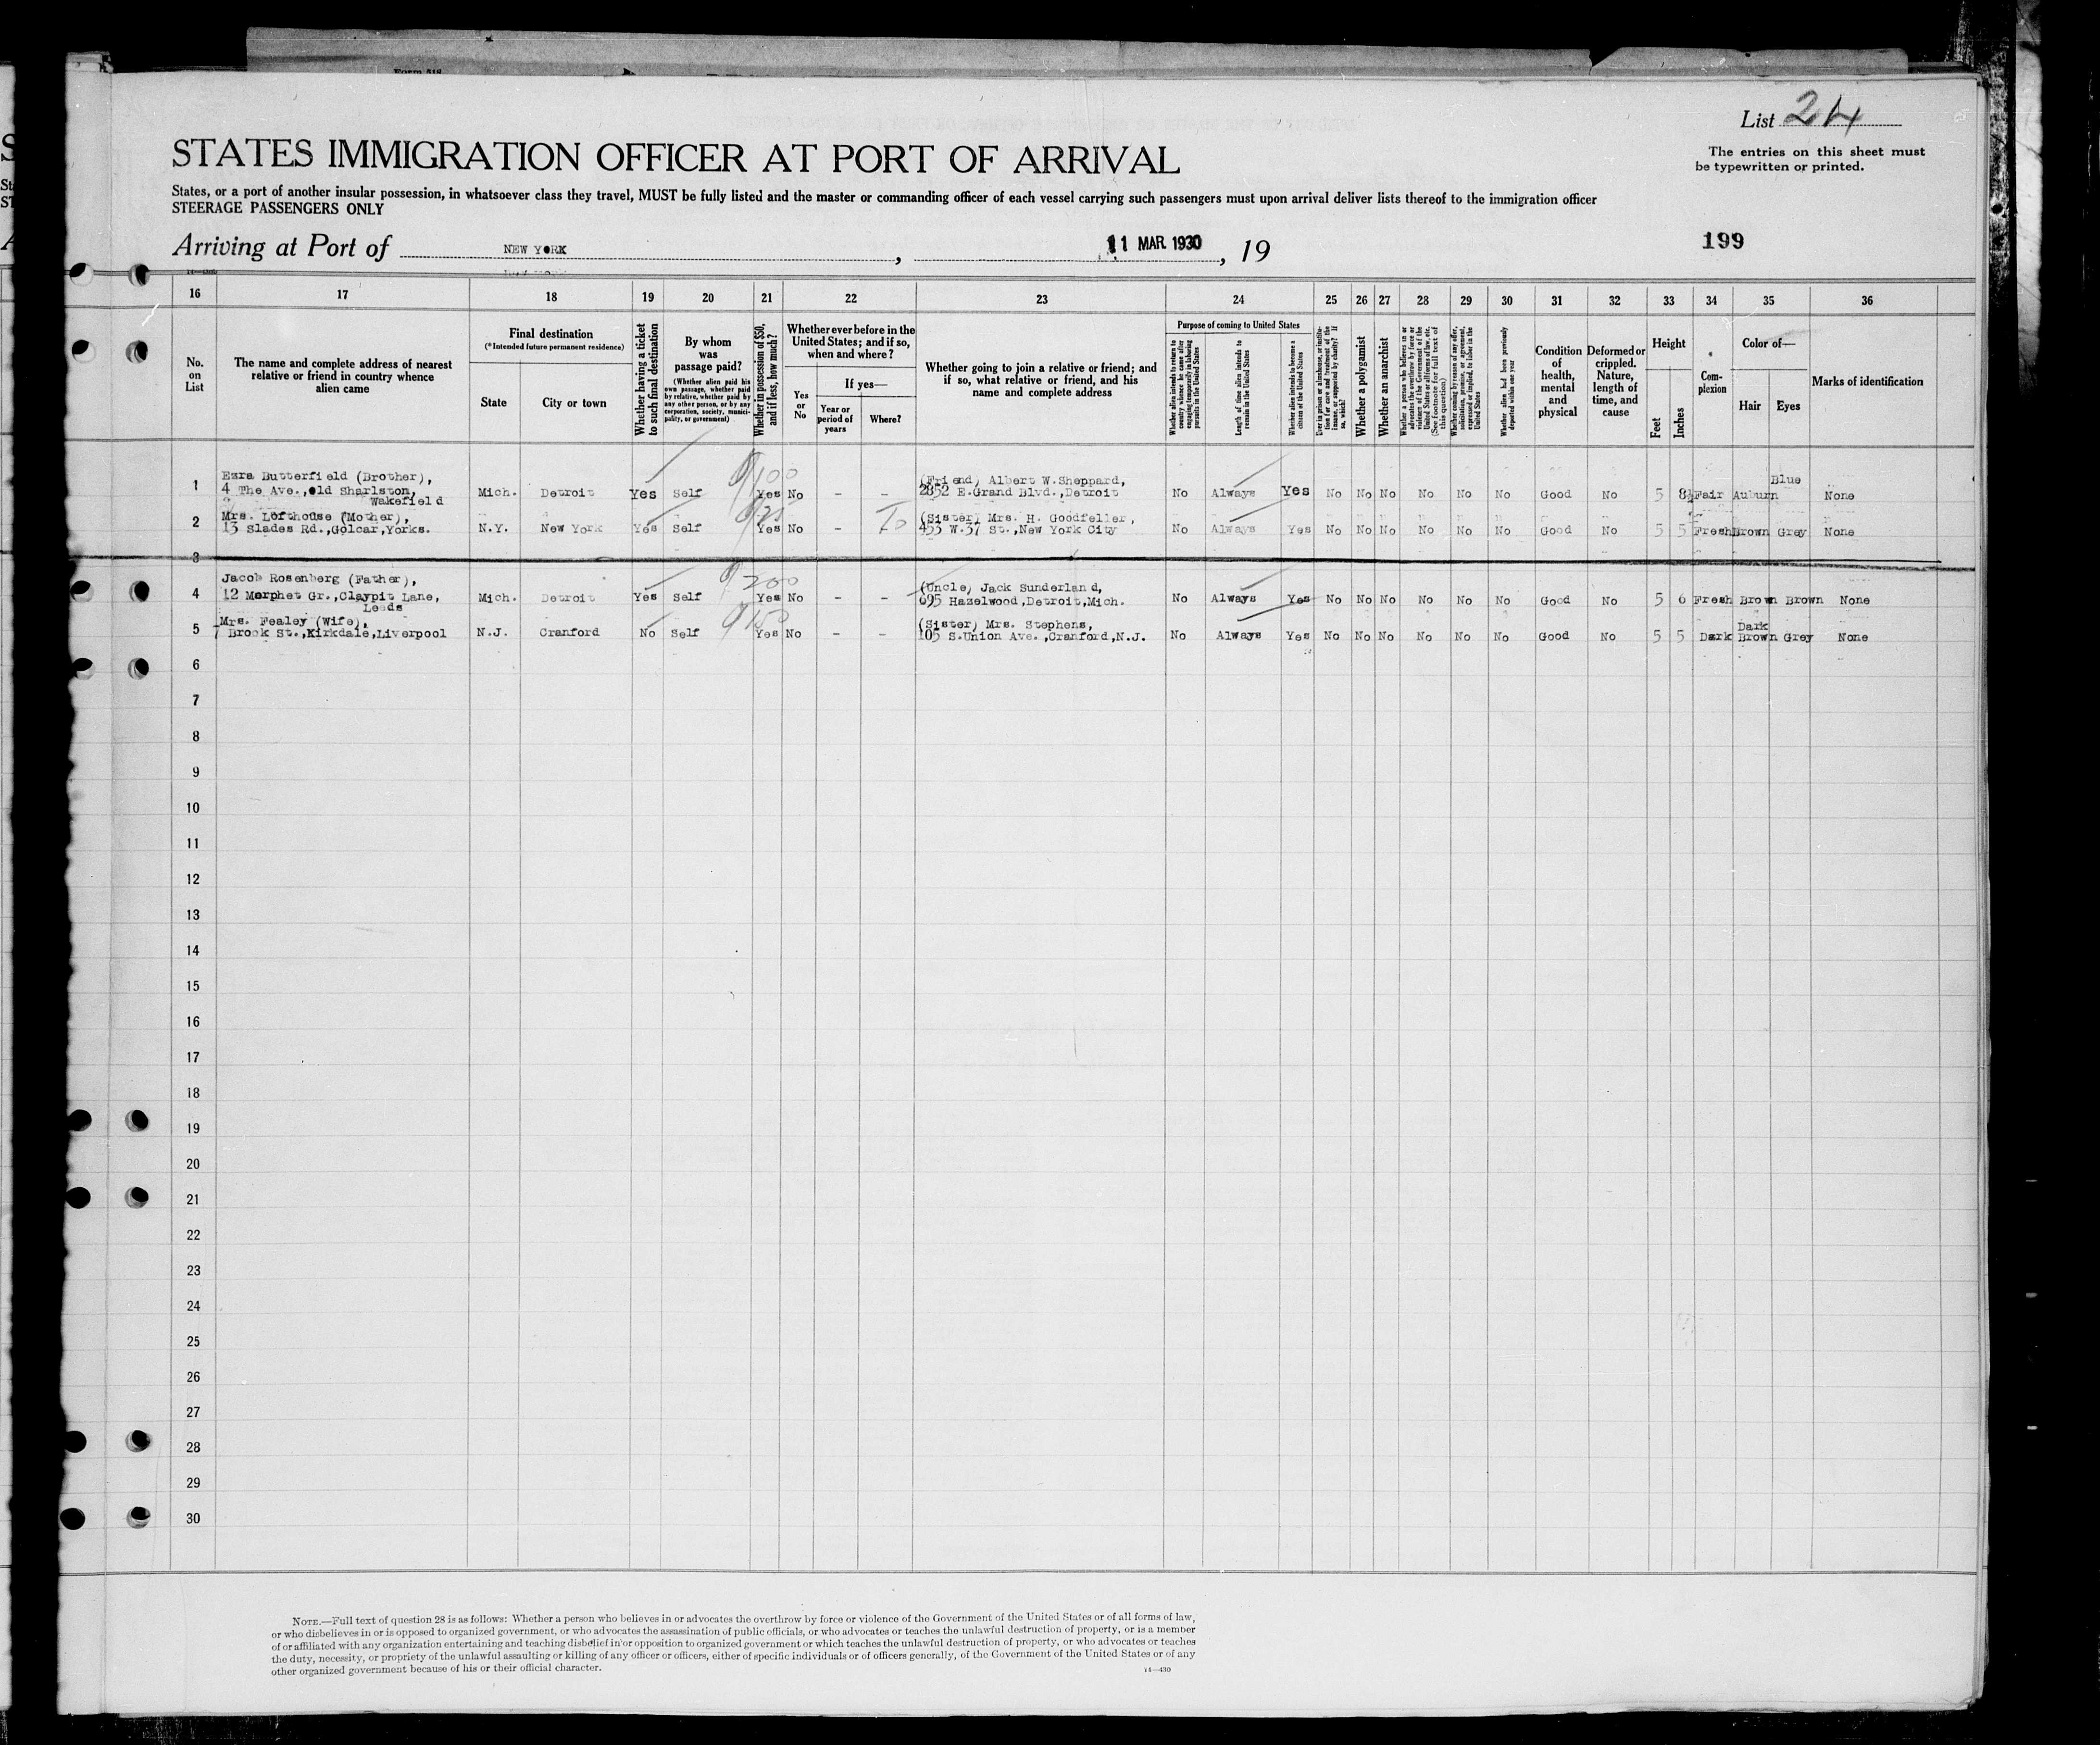 List 24
The entries on this sheet must
be typewritten or printed.
STATES IMMIGRATION OFFICER AT PORT OF ARRIVAL
States, or a port of another insular possession, in whatsoever class they travel, MUST be fully listed and the master or commanding officer of each vessel carrying such passengers must upon arrival deliver lists thereof to the immigration officer
STEERAGE PASSENGERS ONLY
Arriving at Port of NEW YORK, 11 MAR 1930, 19
199
16 17 18 19 20 21 22 23 24 25 26 27 28 29 30 31 32 33 34 35 36
No. on List
The name and complete address of nearest
relative or friend in country whence
alien came
Final destination
(*Intended future permanent residence)
State
City or town
Whether having a ticket
to such final destination
By whom
was
passage paid?
(Whether alien paid his
own passage, whether paid
by relative, whether paid by
any other person, or by any
corporation, society, munici-
pality, or government)
Whether in possession of $50,
and if less, how much?
Whether ever before in the
United States; and if so,
when and where?
Yes
or
No
If yes—
Year or
period of
years
Where?
Whether going to join a relative or friend; and
if so, what relative or friend, and his
name and complete address
Purpose of coming to United States
Whether alien intends to return to
country whence he came after
engaging temporarily in laboring
pursuits in the United States
Length of time alien intends to
remain in the United States
Whether alien intends to become a
citizen of the United States
Ever in prison or almshouse, or institu-
tion for care and treatment of the
insane, or supported by charity? If
so, which?
Whether a polygamist
Whether an anarchist
Whether a person who believes in or
advocates the overthrow by force or
violence of the Government of the
United States or all forms of law, etc.
(See footnote for full text of
this question)
Whether coming by reason of any offer,
solicitation, promise, or agreement,
expressed or implied, to labor in the
United States
Whether alien had been previously
deported within one year
Condition
of
health,
mental
and
physical
Deformed or
crippled.
Nature,
length of
time, and
cause
Height
Feet
Inches
Com-
plexion
Color of—
Hair
Eyes
Marks of identification
1 Ezra Butterfield (Brother),
4 The Ave., Old Sharlston,
Wakefield
Mich. Detroit Yes Self 100 Yes No - -
(Friend) Albert W. Sheppard,
2852 E.Grand Blvd., Detroit
No Always Yes No No No No No No Good No 5 8½ Fair Auburn Blue None
2 Mrs. Lofthouse (Mother),
13 Slades Rd.,Golcar,Yorks.
N.Y. New York Yes Self Yes No -
(Sister) Mrs. H. Goodfeller,
453 W.37 St.,New York City
No Always Yes No No No No No No Good No 5 5 Fresh Brown Grey None
3
4 Jacob Rosenberg (Father),
12 Merphet Gr.,Claypit Lane,
Leeds
Mich. Detroit Yes Self 200 Yes No - -
(Uncle) Jack Sunderland,
695 Hazelwood,Detroit,Mich.
No Always Yes No No No No No No Good No 5 6 Fresh Brown Brown None
5 Mrs. Fealey (Wife),
7 Brook St.,Kirkdale,Liverpool
N.J. Cranford No Self 150 Yes No - -
(Sister) Mrs. Stephens,
105 S.Union Ave.,Cranford,N.J.
No Always Yes No No No No No No Good No 5 5 Dark Dark Brown Grey None
6
7
8
9
10
11
12
13
14
15
16
17
18
19
20
21
22
23
24
25
26
27
28
29
30
NOTE.—Full text of question 28 is as follows: Whether a person who believes in or advocates the overthrow by force or violence of the Government of the United States or of all forms of law,
or who disbelieves in or is opposed to organized government, or who advocates the assassination of public officials, or who advocates or teaches the unlawful destruction of property, or is a member
of or affiliated with any organization entertaining and teaching disbelief in or opposition to organized government or which teaches the unlawful destruction of property, or who advocates or teaches
the duty, necessity, or propriety of the unlawful assaulting or killing of any officer or officers, either of specific individuals or of officers generally, of the Government of the United States or of any
other organized government because of his or their official character.
14—430